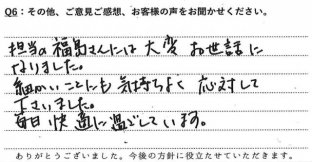 Q6：その他、ご意見ご感想、お客様の声をお聞かせください。
担当の福島さんには大変お世話に
なりました。
細かいことにも気持ちよく応対して
下さいました。
毎日快適に過ごしています。
ありがとうございました。今後の方針に役立たせていただきます。